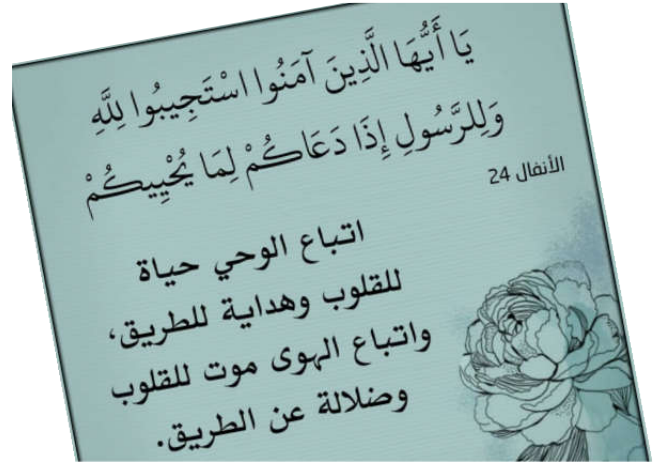 يَا أَيُّهَا الَّذِينَ آمَنُوا اسْتَجِيبُوا لِلَّهِ
وَلِلرَّسُولِ إِذَا دَعَاكُمْ لِمَا يُحْيِيكُمْ
الأنفال 24
اتباع الوحي حياة
للقلوب وهداية للطريق،
واتباع الهوى موت للقلوب
وضلالة عن الطريق.